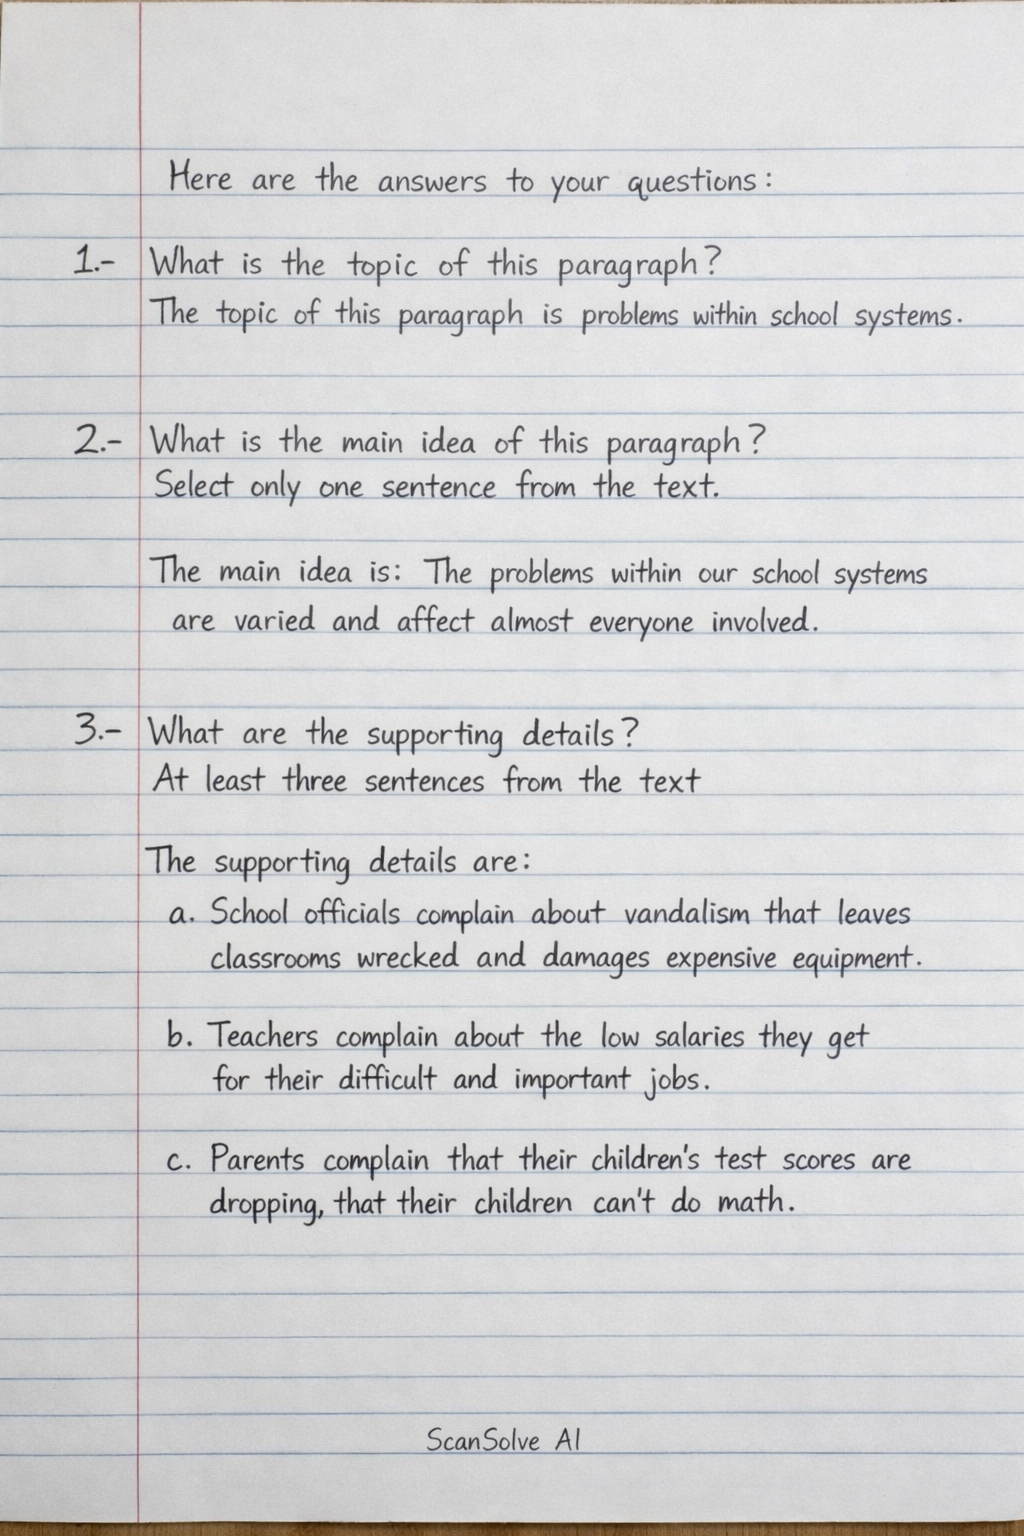 Here are the answers to your questions:
1.- What is the topic of this paragraph?
The topic of this paragraph is problems within school systems.
2.- What is the main idea of this paragraph?
Select only one sentence from the text.
The main idea is: The problems within our school systems
are varied and affect almost everyone involved.
3.- What are the supporting details?
At least three sentences from the text
The supporting details are:
a. School officials complain about vandalism that leaves
classrooms wrecked and damages expensive equipment.
b. Teachers complain about the low salaries they get
for their difficult and important jobs.
c. Parents complain that their children's test scores are
dropping, that their children can't do math.
ScanSolve AI